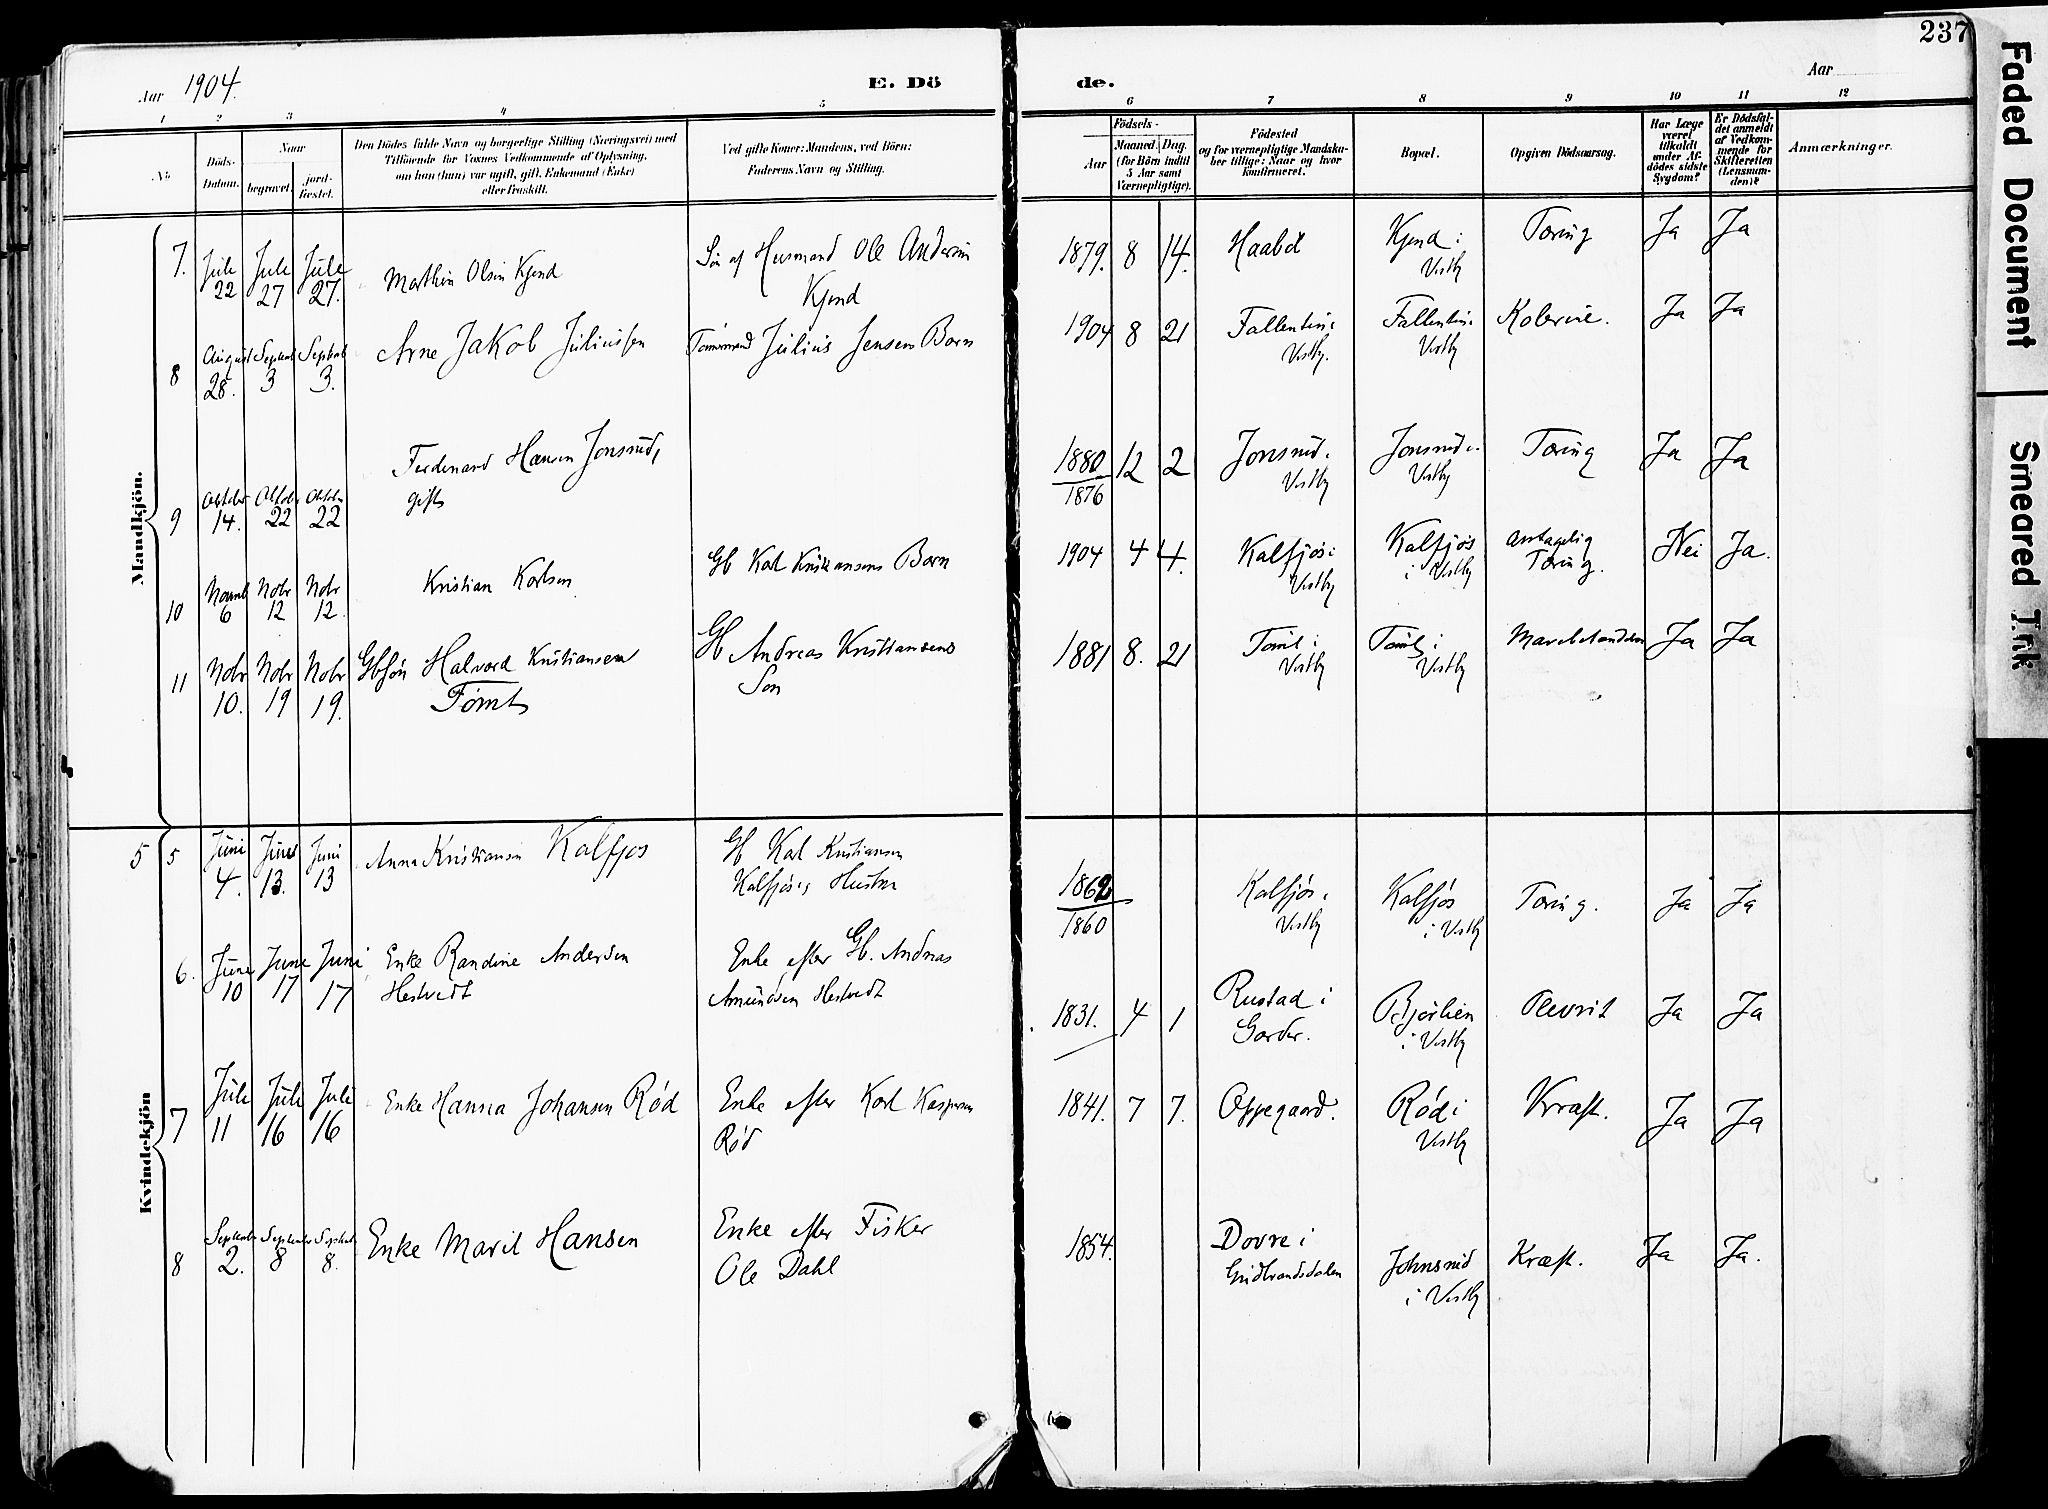 237
Aar 1904.
E. Dö
de.
Aar
1 2 3 4 5 6 7 8 9 10 11 12
No
Döds-
Datum.
Naar
begravet.
jord-
fæstet.
Den Dödes fulde Navn og borgerlige Stilling (Næringsvei) med
Tilföiende for Voxnes Vedkommende af Oplysning,
om han (hun) var ugift, gift, Enkemand (Enke)
eller fraskilt.
Ved gifte Koner: Mandens, ved Börn:
Faderens Navn og Stilling.
Födsels-
Aar
Maaned. Dag.
(for Börn indtil
5 Aar samt
Værnepligtige).
Födested
og for værnepligtige Mandska-
ber tillige: Naar og hvor
konfirmeret.
Bopæl.
Opgiven Dödsaarsag.
Har Læge
været
tilkaldt
under Af-
dödes sidste
Sygdom?
Er Dödsfal-
det anmeldt
af Vedkom-
mende for
Skifteretten
(Lensman-
den)?
Anmærkninger.
Mandkjön.
7. Juli 22 Juli 27 Juli 27. Mathin Olsen Kjend Sön af Husmand Ole Andersen
Kjend
1879. 8 14. Haaböl Kjend i
Vestby
Tæring Ja Ja
8 August 28. Septemb 3 Septemb 3. Arne Jakob Juliussen Tömmermand Julius Jensens Barn
1904 8 21 Fallentin i
Vestby.
Fallentin i
Vestby
Kolerine. Ja Ja
9 Oktober 14. Oktober 22 Oktober 22 Ferdinand Hansen Jonsrud,
gift
1880
1876
12 2 Jonsrud i
Vestby
Jonsrud i
Vestby
Tæring Ja Ja
10 Novemb 6 Novbr 12 Novbr 12. Kristian Karlsen Gb Karl Kristiansens Barn
1904 4 4. Kalfjös i
Vestby
Kalfjös
i Vestby
antagelig
Tæring.
Nei Ja.
11 Novbr 10. Novbr 19 Novbr 19. Gbsön Halvard Kristiansen
Tömt
Gb Andreas Kristiansens
Søn
1881 8. 21 Tömt i
Vestby
Tömt i
Vestby
Ja Ja
Kvindekjön
5 5 Juni 4. Juni 13. Juni 13 Anna Kristiansen Kalfjøs Gb Karl Kristiansen
Kalfjös's Hustru
1862
1860
Kalfjös i
Vestby
Kalfjøs
i Vestby
Tæring. Ja Ja
6. Juni 10 Juni 17 Juni 17 Enke Randine Andersen
Hestvedt
Enke efter Gb. Andreas
Amundsen Hestvedt
1831. 4 1 Rustad i
Garder.
Bjørlien
i Vestby
Plevrit Ja Ja
7 Juli 11 Juli 16 Juli 16 Enke Hanna Johansen Rød Enke efter Karl Kaspersen
Rød
1841. 7 7. Oppegaard. Rød i
Vestby
Kræft. Ja Ja
8 Septemb 2. September 8 Septemb 8. Enke Marit Hansen Enke efter Fisker
Ole Dahl
1854. Dovre i
Gudbrandsdalen
Johnsrud
i Vestby
Kræft. Ja Ja.
Faded Document
Smeared Ink